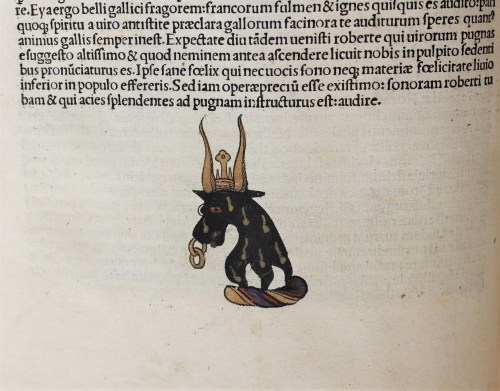 re. Ey a ergo belli gallici fragorem: francorum fulmen & ignes quisquis es audito: pari
quoq; spiritu a uiro antistite præclara gallorum facinora te auditurum speres quant
animus gallis semper inest. Expectate diu tãdem uenisti roberte qui uirorum pugnas
e suggesto altissimo & quod neminem antea ascendere licuit nobis in pulpito sedenti
bus pronũciaturus es. Ipse sane fœlix qui nec uocis sono neq; materiæ fœlicitate liuio
inferior in populo effereris. Sed iam operæpreciũ esse existimo: sonoram roberti tu
bam & qui acies splendentes ad pugnam instructurus est: audire.